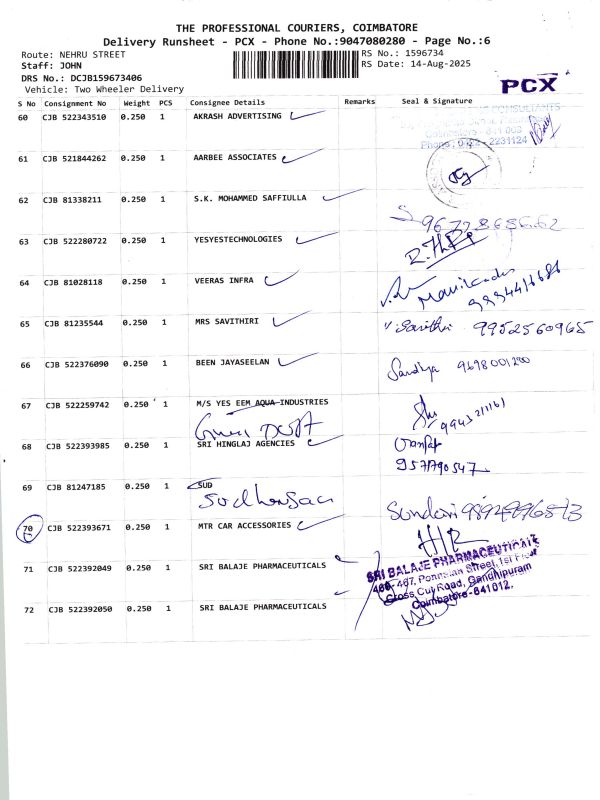 THE PROFESSIONAL COURIERS, COIMBATORE
Delivery Runsheet - PCX - Phone No.:9047080280 - Page No.:6
Route: NEHRU STREET
RS No.: 1596734
Staff: JOHN
RS Date: 14-Aug-2025
DRS No.: DCJB159673406
Vehicle: Two Wheeler Delivery
PCX
S No Consignment No Weight PCS Consignee Details Remarks Seal & Signature
60 CJB 522343510 0.250 1 AKRASH ADVERTISING
CONSULTANTS
Phone: 2231124
61 CJB 521844262 0.250 1 AARBEE ASSOCIATES
62 CJB 81338211 0.250 1 S.K. MOHAMMED SAFFIULLA
63 CJB 522280722 0.250 1 YESYESTECHNOLOGIES
64 CJB 81028118 0.250 1 VEERAS INFRA
65 CJB 81235544 0.250 1 MRS SAVITHIRI
V. Savithri 9952560965
66 CJB 522376090 0.250 1 BEEN JAYASEELAN
Sandiya 9698001200
67 CJB 522259742 0.250 1 M/S YES EEM AQUA INDUSTRIES
68 CJB 522393985 0.250 1 SRI HINGLAJ AGENCIES
9571790547
69 CJB 81247185 0.250 1 SUD
70 CJB 522393671 0.250 1 MTR CAR ACCESSORIES
71 CJB 522392049 0.250 1 SRI BALAJE PHARMACEUTICALS
SRI BALAJE PHARMACEUTICALS
466-467, Ponnaian Street, 1st Floor
Cross Cut Road, Gandhipuram
Coimbatore-641012.
72 CJB 522392050 0.250 1 SRI BALAJE PHARMACEUTICALS